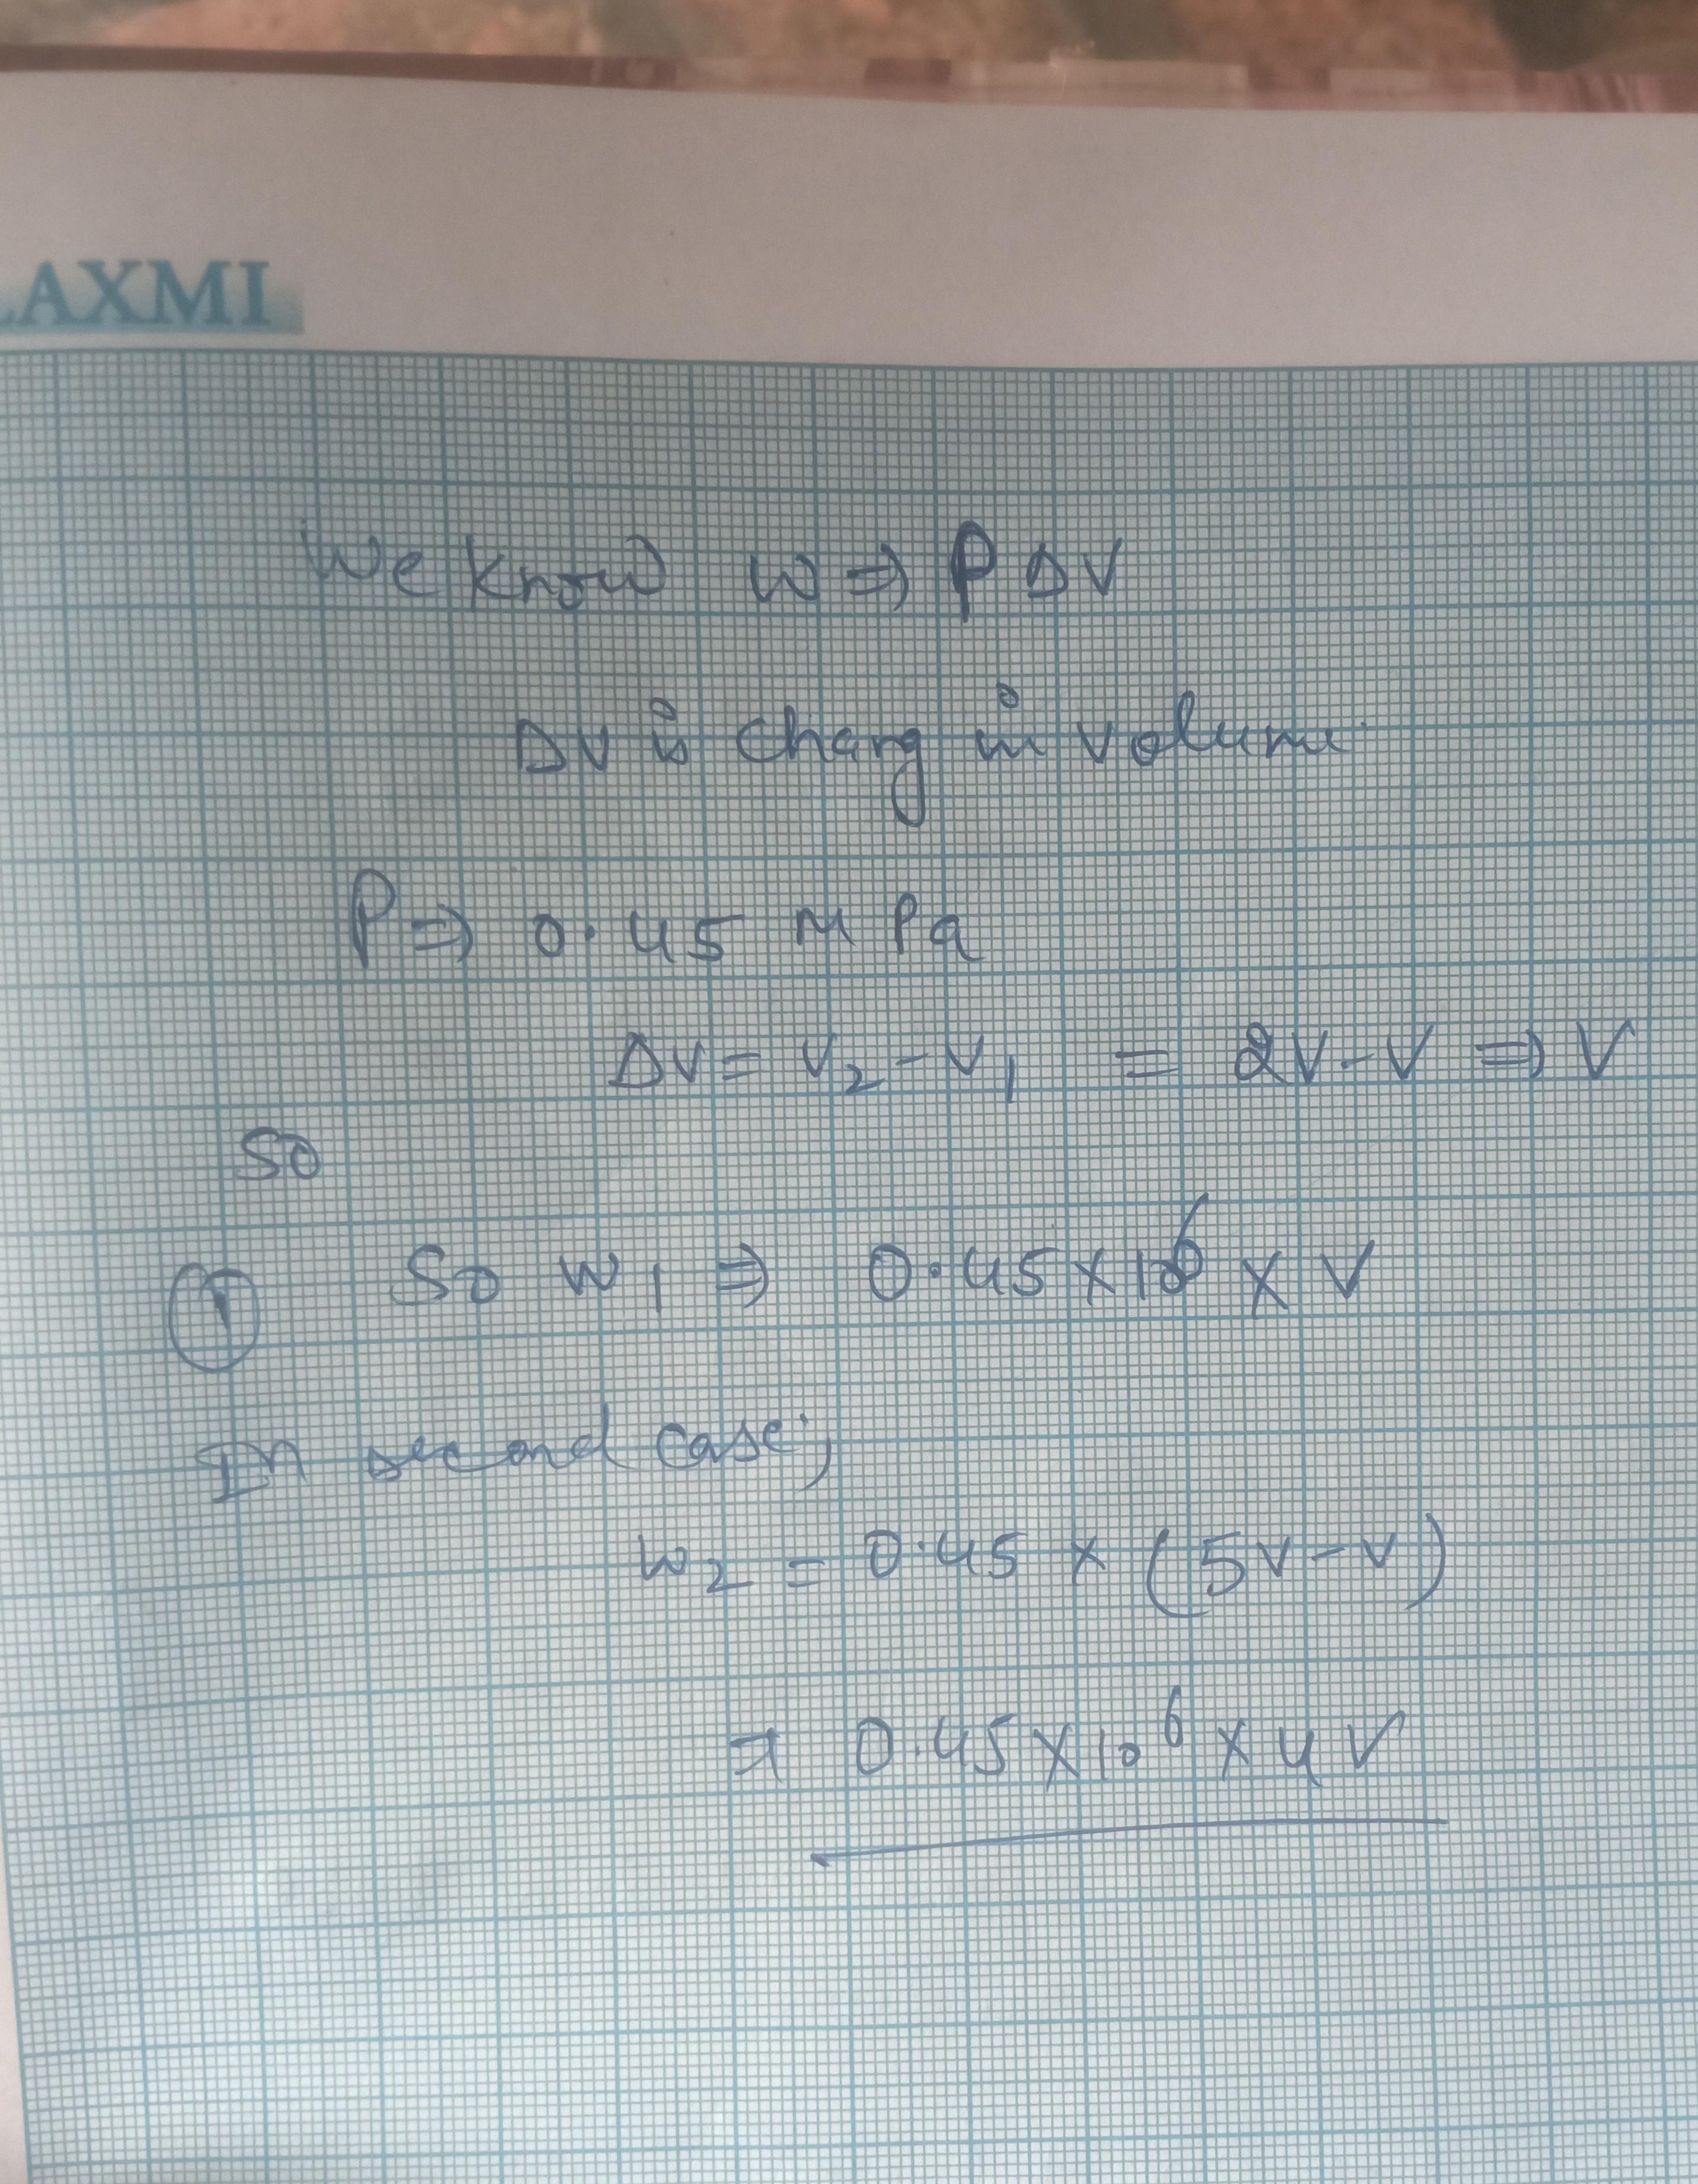 LAXMI
We know W ⇒ P ΔV
ΔV is chang in volume
P ⇒ 0.45 M Pa
ΔV = V₂ - V₁ = 2V - V ⇒ V
So
① So W₁ ⇒ 0.45 × 10⁶ × V
In second case;
W₂ = 0.45 × (5V - V)
⇒ 0.45 × 10⁶ × 4V